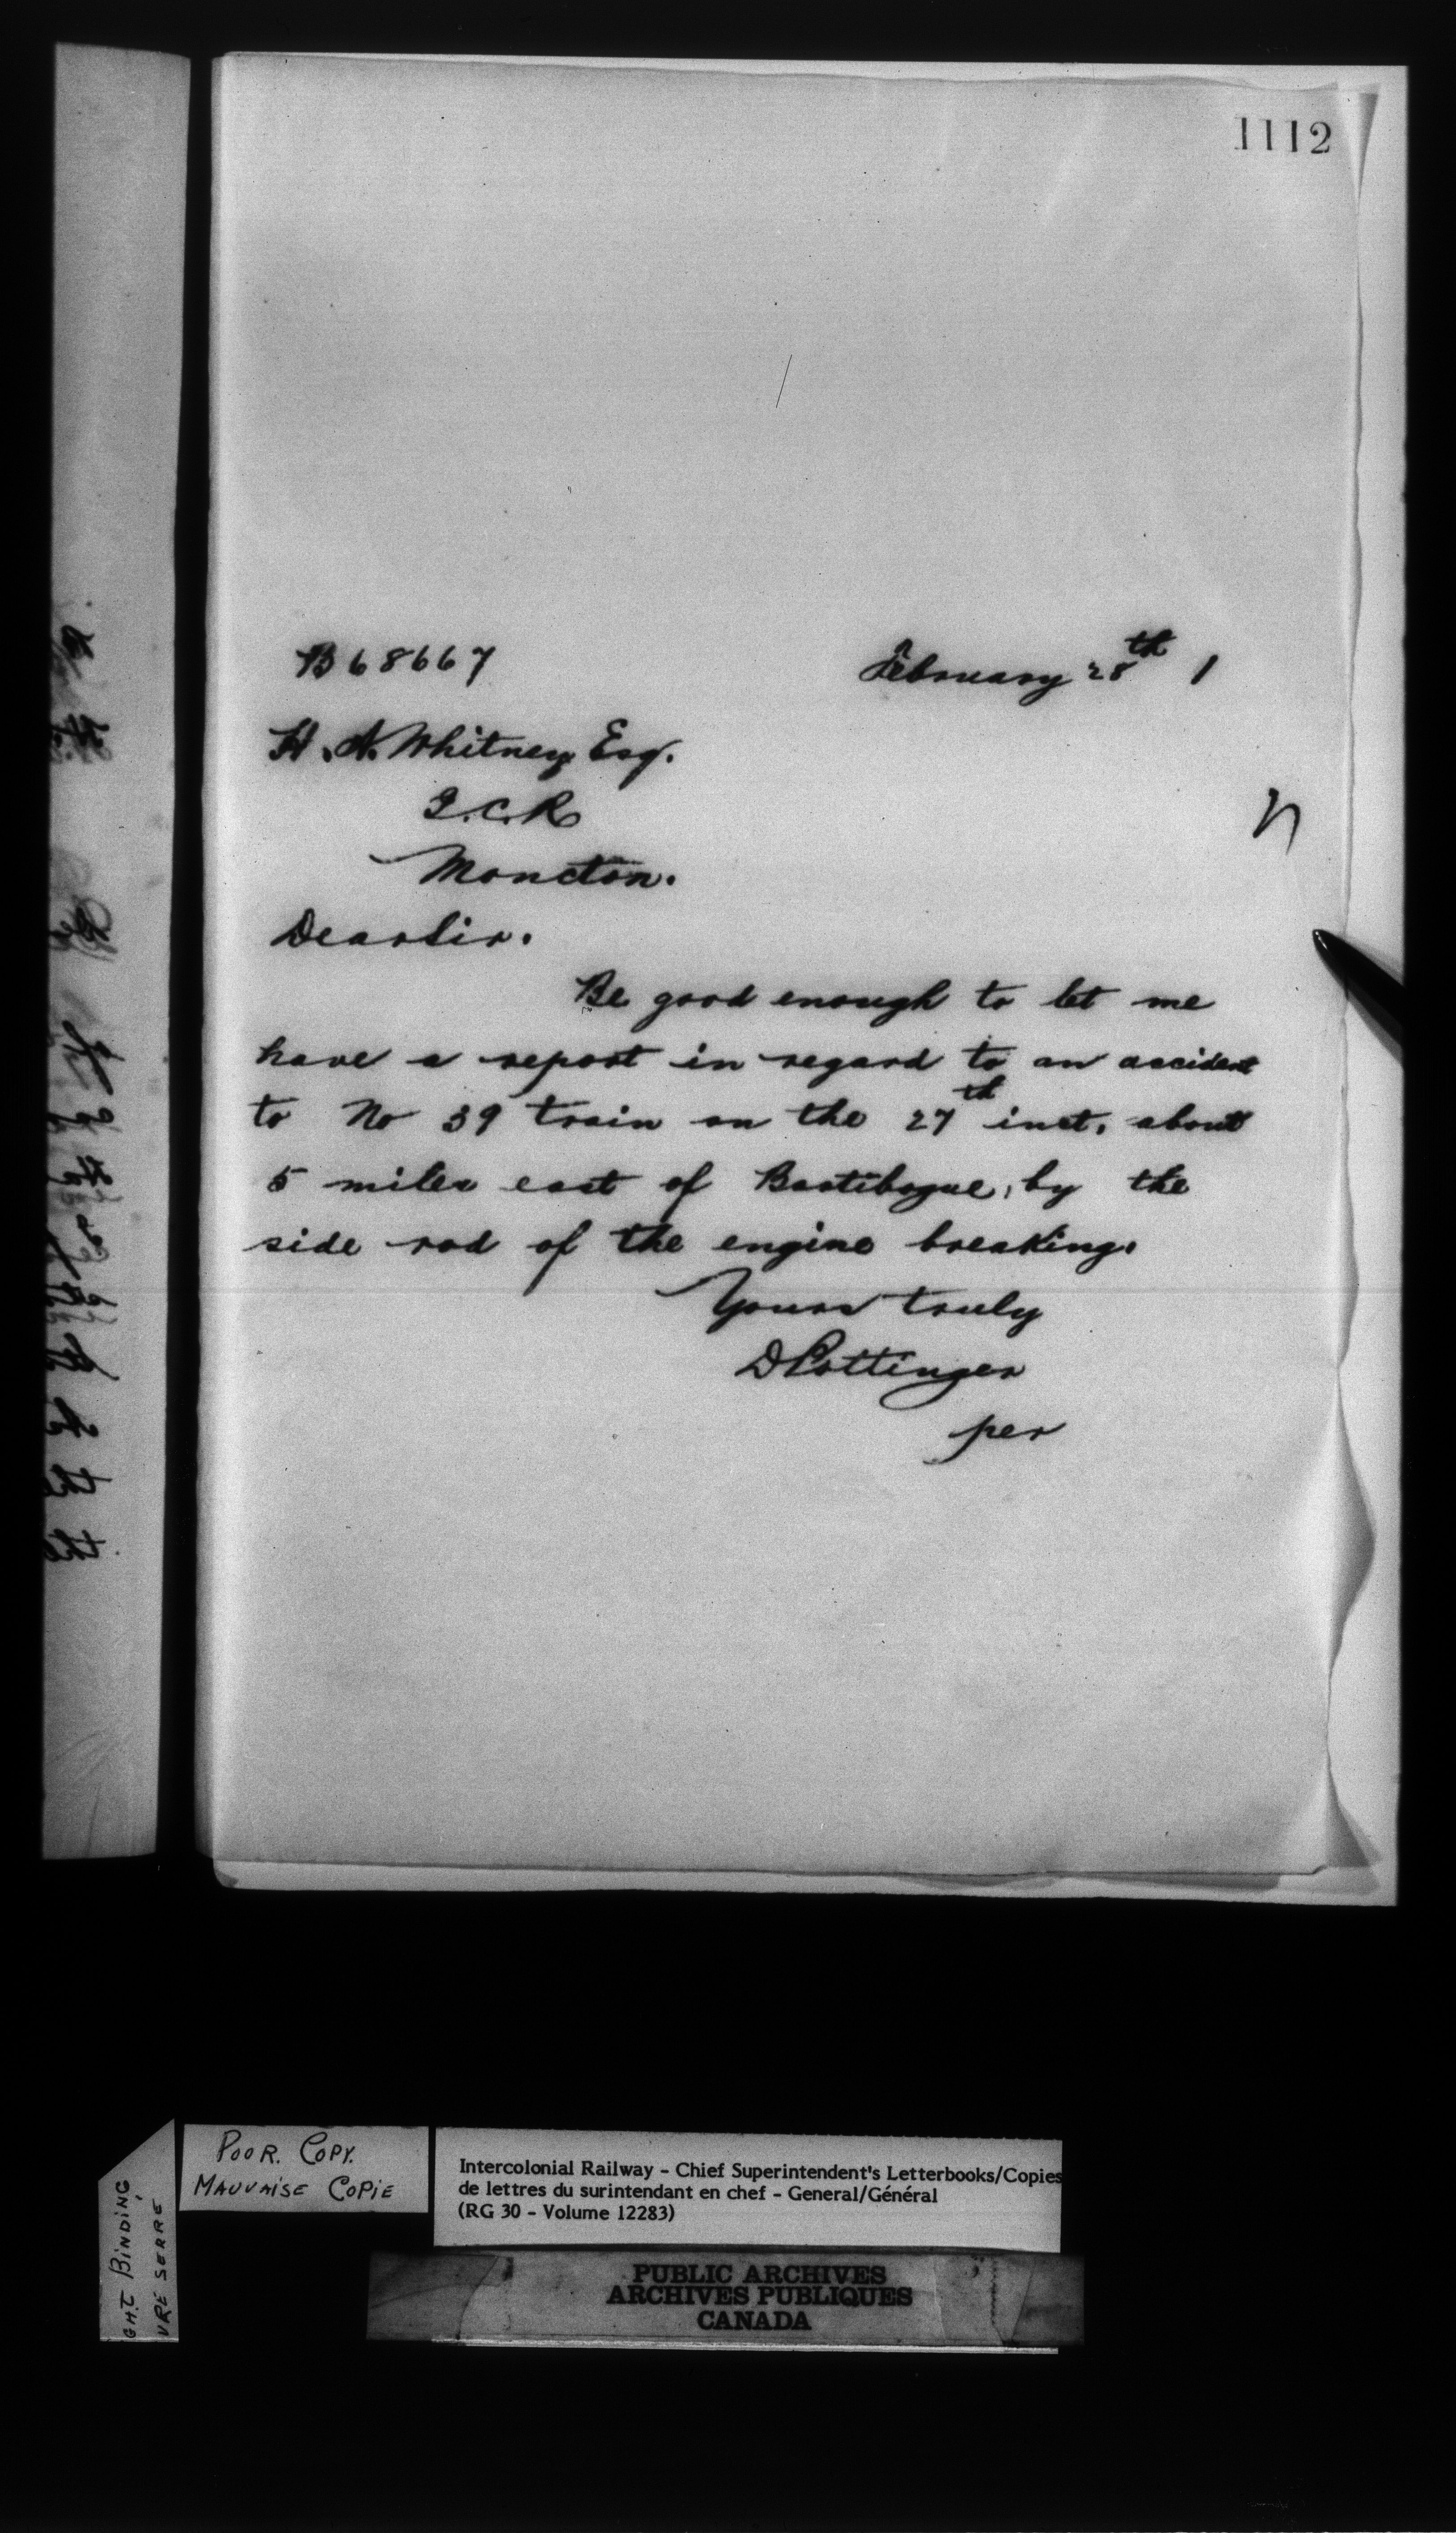 1112
B 68667
February 28th 1
H. A. Whitney Esq.
I.C.R
Moncton.
Dear Sir.
Be good enough to let me
have a report in regard to an accident
to No 39 train on the 27th inst. about
5 miles east of Bartibogue, by the
side rod of the engine breaking.
Yours truly
D Pottinger
per
POOR. COPY.
MAUVAISE COPIE
GHT BINDING
VRE SERRE
Intercolonial Railway - Chief Superintendent's Letterbooks/Copies
de lettres du surintendant en chef - General/Général
(RG 30 - Volume 12283)
PUBLIC ARCHIVES
ARCHIVES PUBLIQUES
CANADA